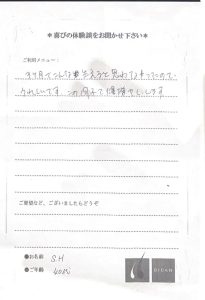 ＊喜びの体験談をお聞かせ下さい＊
ご利用メニュー：
3ヶ月でこんなに生えると思わなかったので、
うれしいです。この調子で頑張ります
ご要望など、ございましたらどうぞ
●お名前 S H
●ご年齢 40代